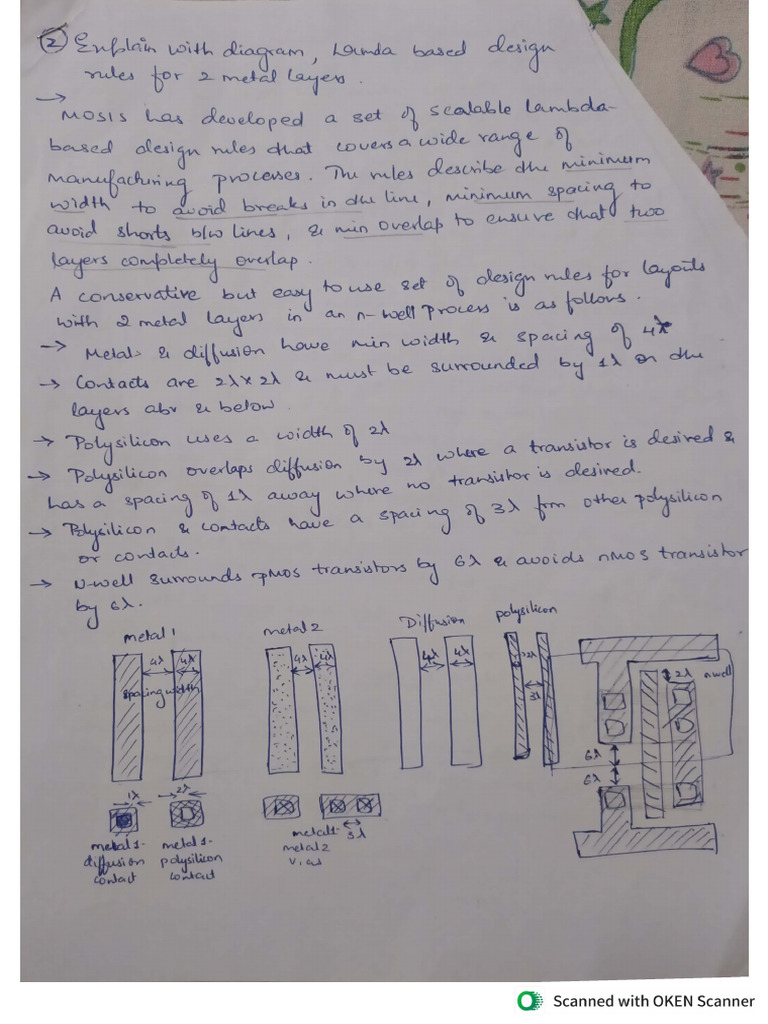 ② Explain with diagram, Lamda based design
rules for 2 metal layers.
→
MOSIS has developed a set of scalable lambda-
based design rules that covers a wide range of
manufacturing processes. The rules describe the minimum
width to avoid breaks in the line, minimum spacing to
avoid shorts b/w lines, & min overlap to ensure that two
layers completely overlap.
A conservative but easy to use set of design rules for layouts
with 2 metal layers in an n-well process is as follows.
→ Metal & diffusion have min width & spacing of 4λ
→ Contacts are 2λ×2λ & must be surrounded by 1λ on the
layers abv & below.
→ Polysilicon uses a width of 2λ
→ Polysilicon overlaps diffusion by 2λ where a transistor is desired &
has a spacing of 1λ away where no transistor is desired.
→ Polysilicon & contacts have a spacing of 3λ frm other polysilicon
or contacts.
→ N-well surrounds pMOS transistors by 6λ & avoids nMOS transistor
by 6λ.
metal 1 metal 2 Diffusion polysilicon
4λ 4λ 4λ 4λ 4λ 4λ 2λ 2λ nwell
spacing width 3λ
6λ
6λ
1λ 2λ
3λ
metal 1- diffusion contact
metal 1- polysilicon contact
metal1- metal 2 vias
Scanned with OKEN Scanner